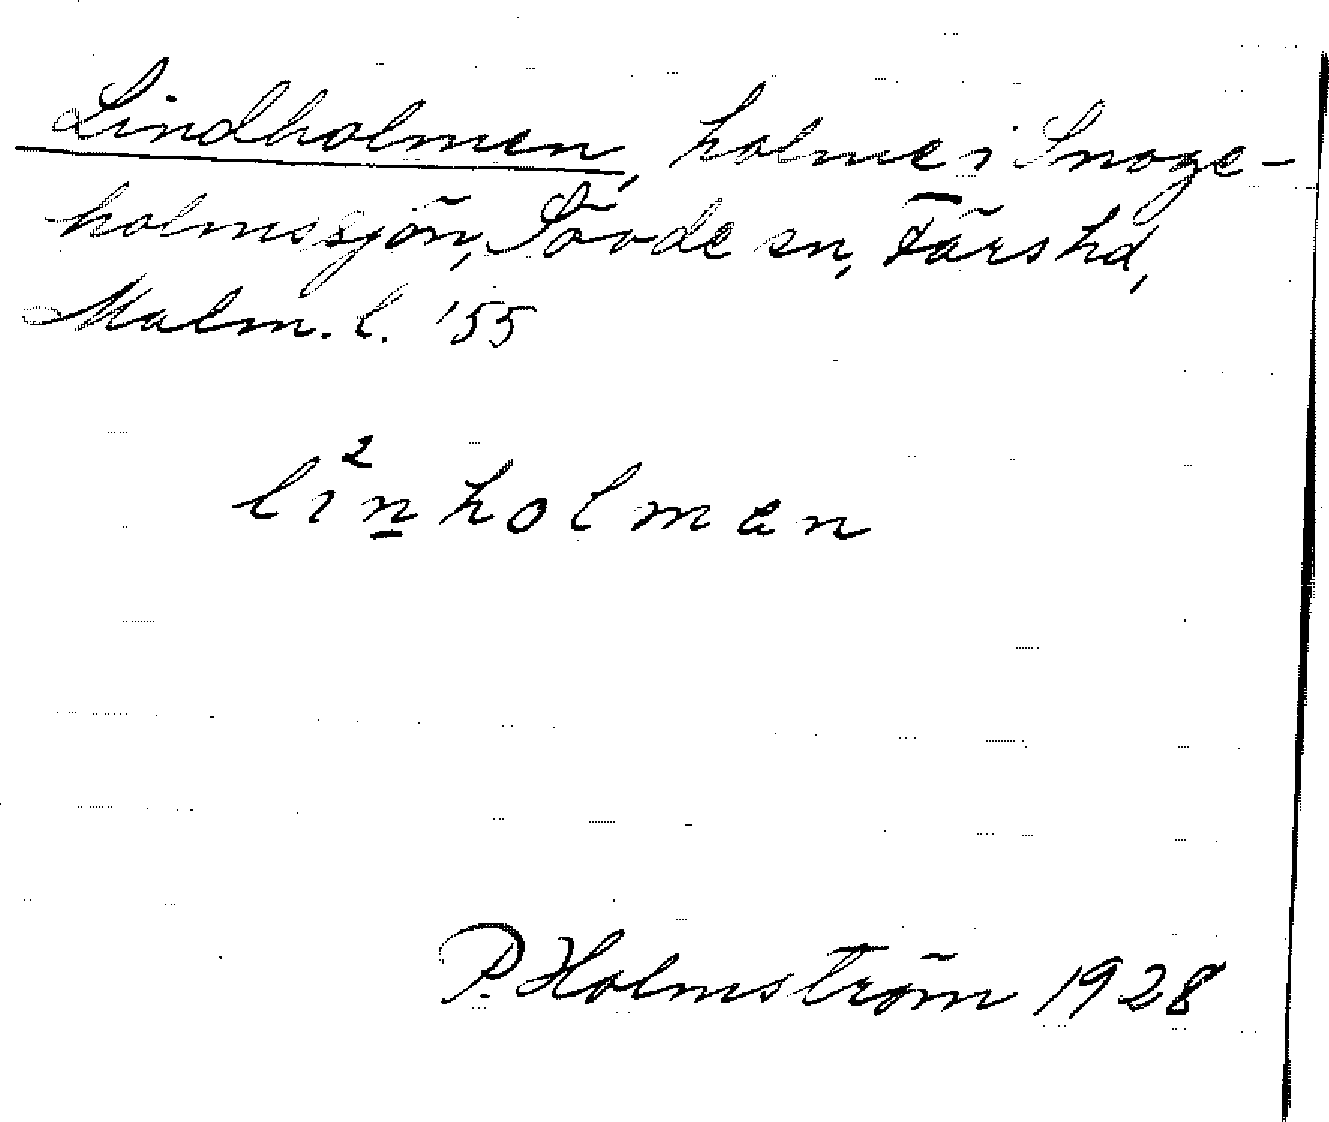 Lindholmen, holme i Snoge-
holmssjön, Sövde sn, Färs hd,
Malm. l. '55
li²n̲holmen
P. Holmström 1928